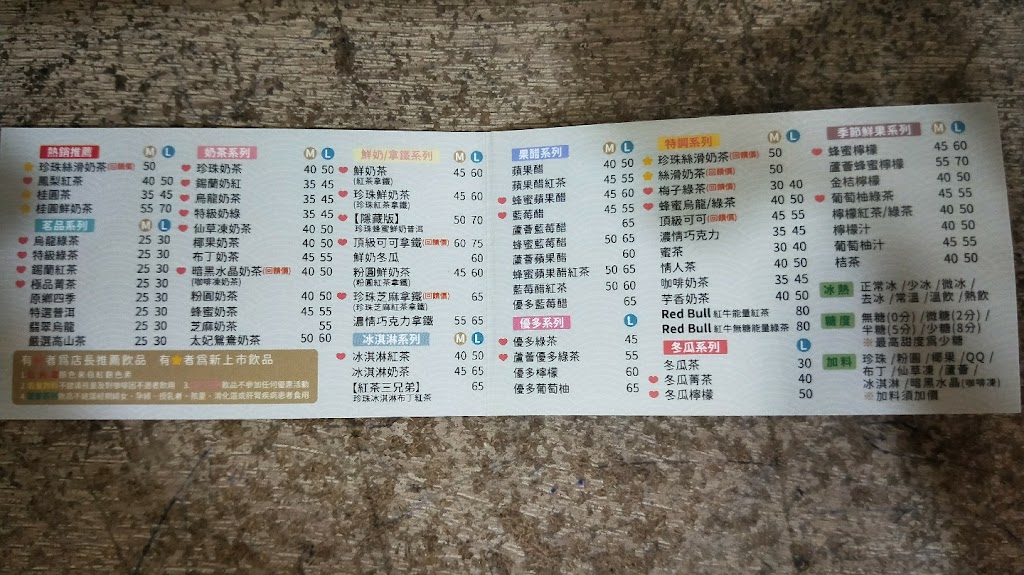 熱銷推薦 M L
珍珠絲滑奶茶(回饋價) 50
鳳梨紅茶 40 50
桂圓茶 35 45
桂圓鮮奶茶 55 70
名品系列 M L
烏龍綠茶 25 30
特級綠茶 25 30
錫蘭紅茶 25 30
極品菁茶 25 30
原鄉四季 25 30
特選普洱 25 30
翡翠烏龍 25 30
嚴選高山茶 25 30
奶茶系列 M L
珍珠奶茶 40 50
錫蘭奶紅 35 45
烏龍奶茶 35 45
特級奶綠 35 45
仙草凍奶茶 40 50
椰果奶茶 40 50
布丁奶茶 45 55
暗黑水晶奶茶(回饋價) 40 50
(咖啡凍奶茶)
粉圓奶茶 40 50
蜂蜜奶茶 45 55
芝麻奶茶 55
太妃鴛鴦奶茶 50 60
有 者為店長推薦飲品 有★者為新上市飲品
鮮奶/拿鐵系列 M L
鮮奶茶 45 60
(紅茶拿鐵)
珍珠鮮奶茶 45 60
(珍珠紅茶拿鐵)
【隱藏版】 50 70
珍珠蜂蜜鮮奶普洱
頂級可可拿鐵(回饋價) 60 75
鮮奶冬瓜 60
粉圓鮮奶茶 45 60
(粉圓紅茶拿鐵)
珍珠芝麻拿鐵(回饋價) 65
(珍珠芝麻紅茶拿鐵)
濃情巧克力拿鐵 55 65
冰淇淋系列 M L
冰淇淋紅茶 40 50
冰淇淋奶茶 45 65
【紅茶三兄弟】 65
珍珠冰淇淋布丁紅茶
果醋系列 M L
蘋果醋 40 50
蘋果醋紅茶 45 55
蜂蜜蘋果醋 45 55
藍莓醋 45 55
蘆薈藍莓醋 65
蜂蜜藍莓醋 50 65
蘆薈蘋果醋 60
蜂蜜蘋果醋紅茶 50 65
藍莓醋紅茶 50 60
優多藍莓醋 65
優多系列 L
優多綠茶 45
蘆薈優多綠茶 55
優多檸檬 60
優多葡萄柚 65
特調系列 M L
珍珠絲滑奶茶(回饋價) 50
絲滑奶茶(回饋價) 50
梅子綠茶(回饋價) 30 40
蜂蜜烏龍/綠茶 40 50
頂級可可(回饋價) 45 55
濃情巧克力 45 55
蜜茶 30 40
情人茶 40 50
咖啡奶茶 35 45
芋香奶茶 40 50
Red Bull 紅牛能量紅茶 80
Red Bull 紅牛無糖能量綠茶 80
冬瓜系列 L
冬瓜茶 30
冬瓜菁茶 40
冬瓜檸檬 50
季節鮮果系列 M L
蜂蜜檸檬 45 60
蘆薈蜂蜜檸檬 55 70
金桔檸檬 40 50
葡萄柚綠茶 45 55
檸檬紅茶/綠茶 40 50
檸檬汁 40 50
葡萄柚汁 45 55
桔茶 40 50
冰熱 正常冰/少冰/微冰/
去冰/常溫/溫飲/熱飲
糖度 無糖(0分)/微糖(2分)/
半糖(5分)/少糖(8分)
※最高甜度為少糖
加料 珍珠/粉圓/椰果/QQ/
布丁/仙草凍/蘆薈/
冰淇淋/暗黑水晶(咖啡凍)
※加料須加價